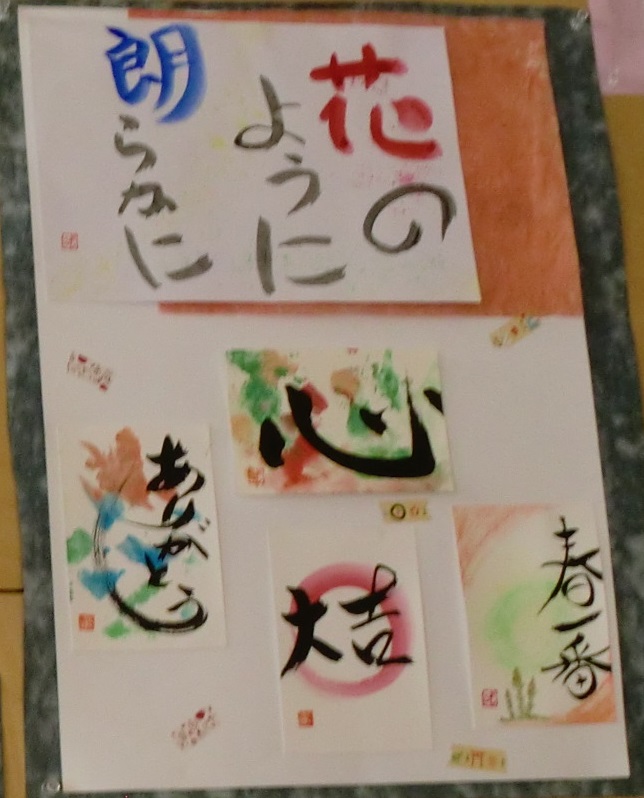 花の
ように
朗らかに
心
ありがとう
大吉
春一番